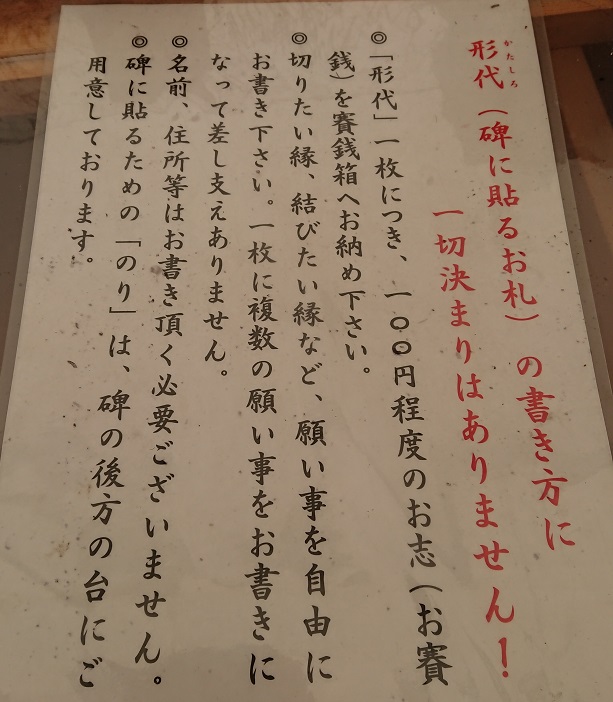 かたしろ
形代（碑に貼るお札）の書き方に
一切決まりはありません！
◎「形代」一枚につき、一〇〇円程度のお志（お賽
銭）を賽銭箱へお納め下さい。
◎切りたい縁、結びたい縁など、願い事を自由に
お書き下さい。一枚に複数の願い事をお書きに
なって差し支えありません。
◎名前、住所等はお書き頂く必要ございません。
◎碑に貼るための「のり」は、碑の後方の台にご
用意しております。